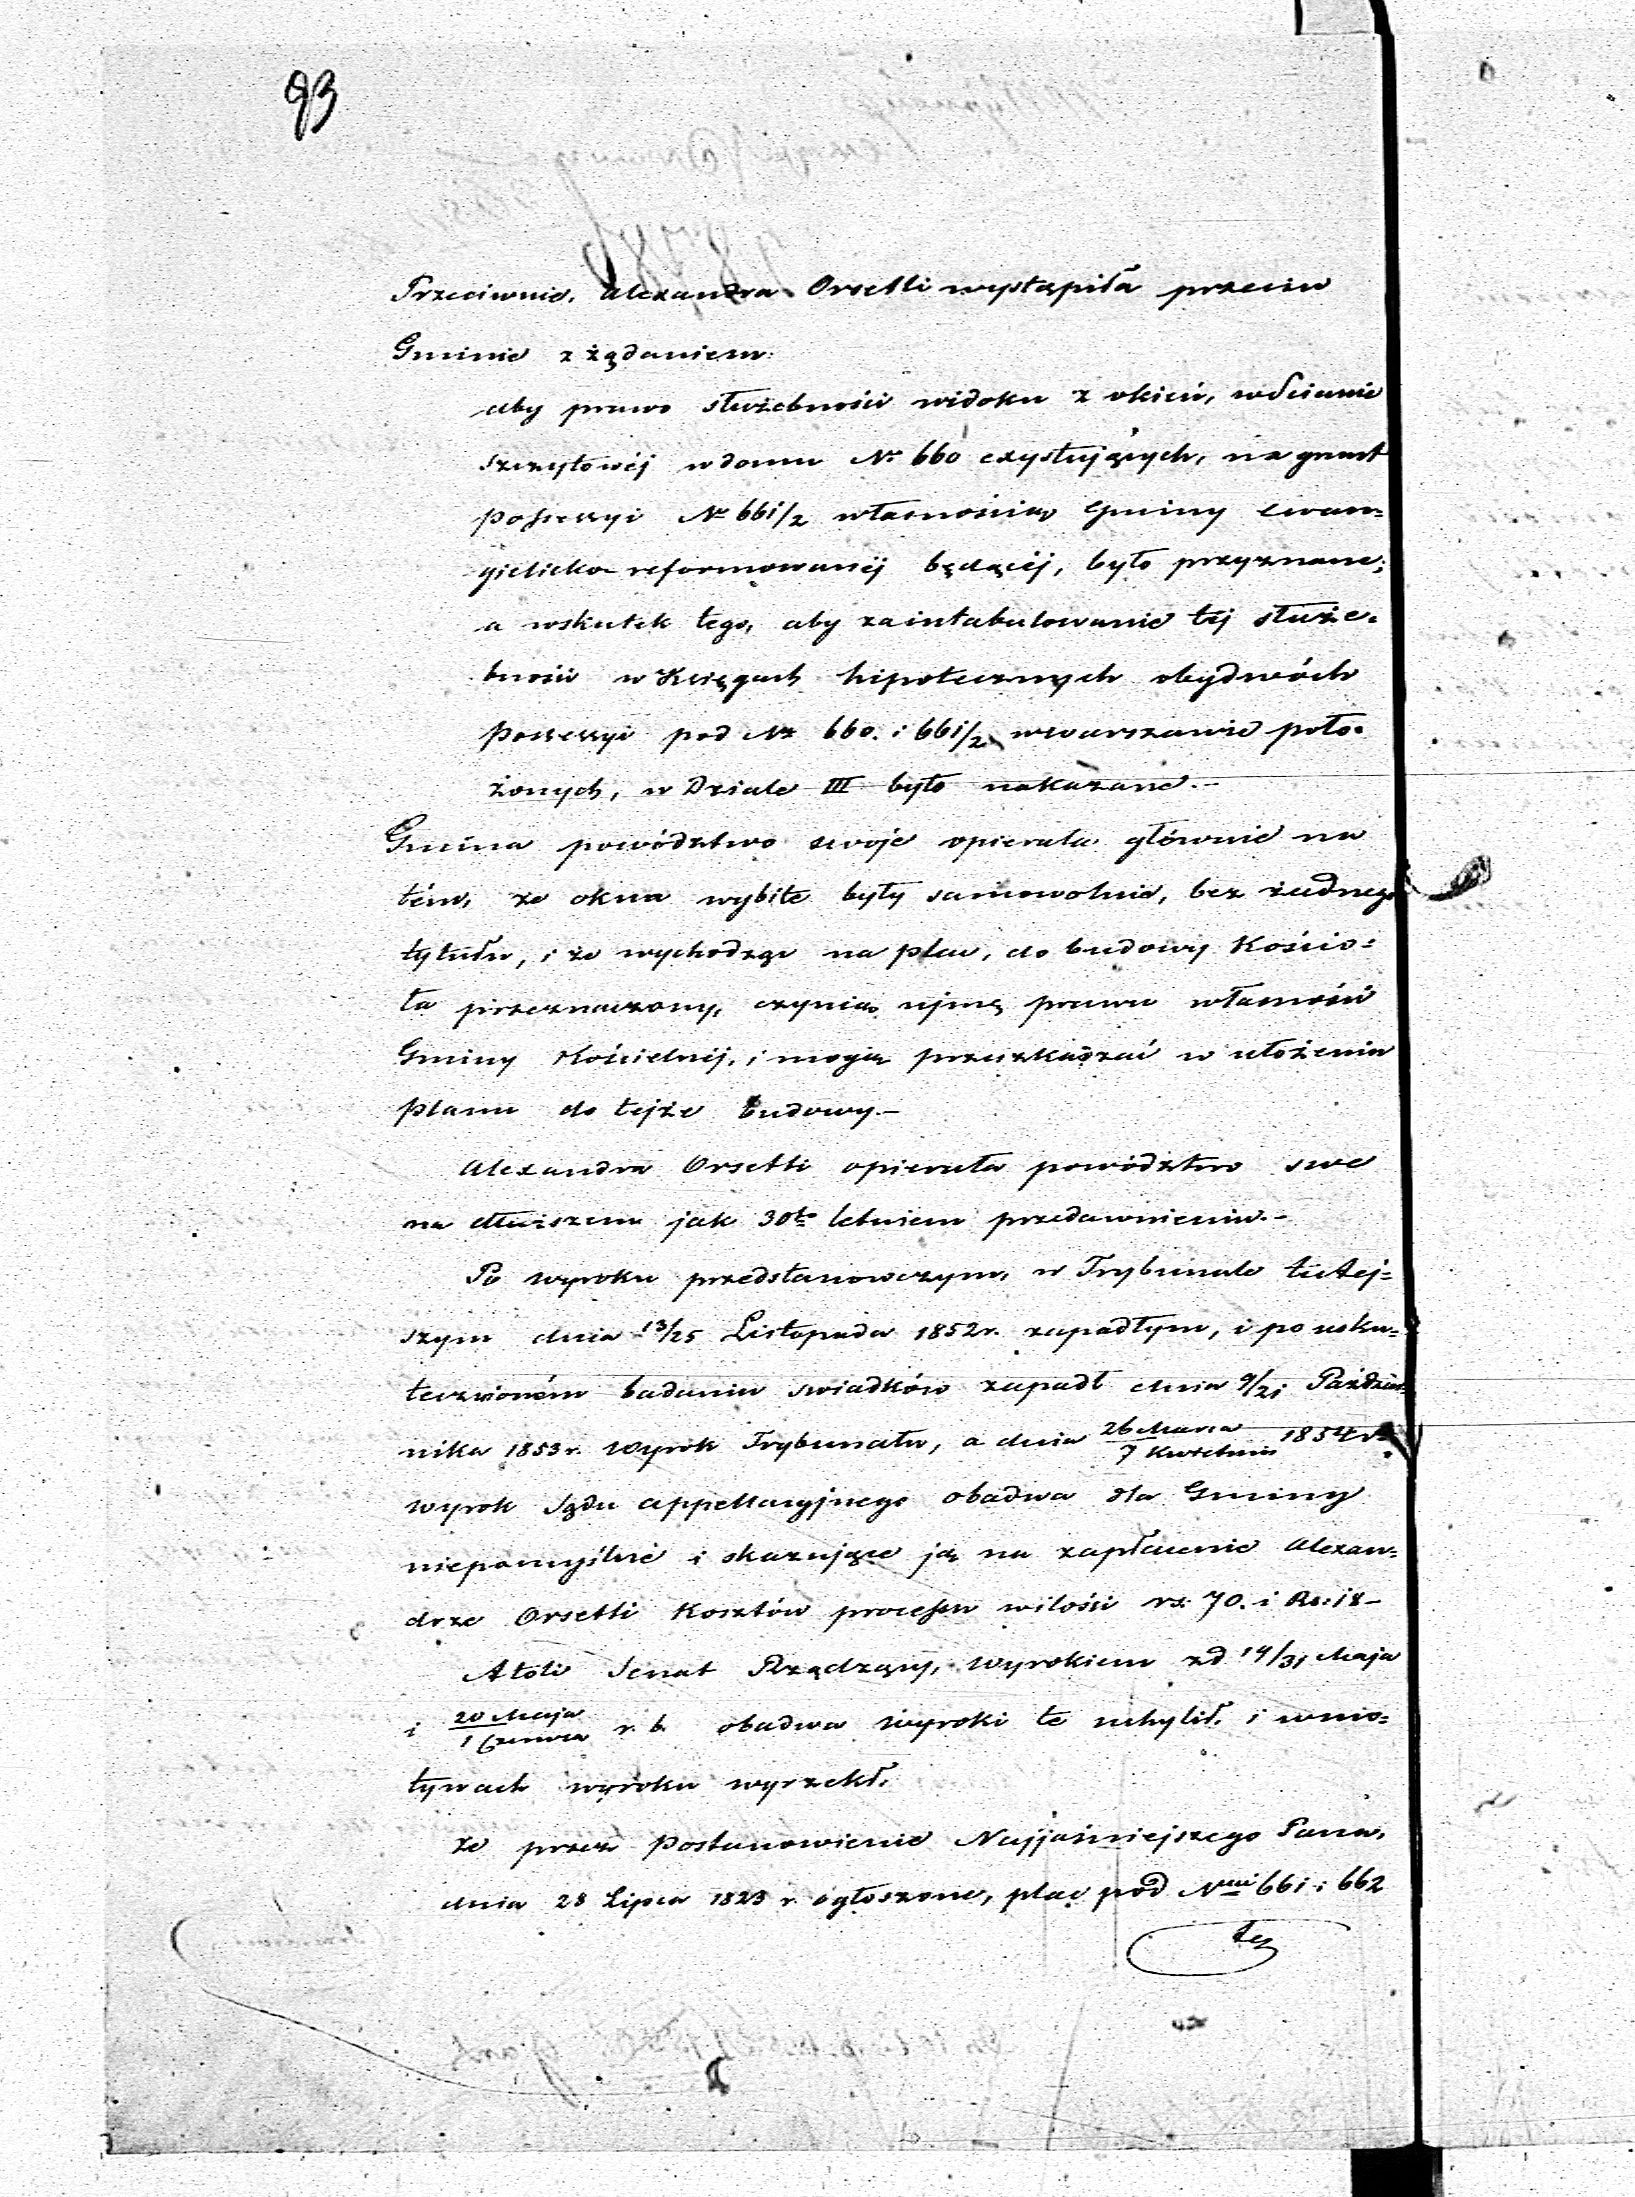 93
Przeciwnie, Alexandra Orsetti wystąpiła przeciw
Gminie z żądaniem:
aby prawo służebności widoku z okien, w ścianie
szczytowéj w domu Nr 660 exystujących, na grunt
possessyi Nr 661/2 własnością Gminy Ewan=
gielicko-reformowanéj będącéj, było przyznane;
a wskutek tego, aby zaintabulowanie téj służe=
bności w Księgach hipotecznych obydwóch
possessyi pod Nr 660. i 661/2 w Warszawie poło=
żonych, w Dziale III było nakazane.—
Gmina powództwo swoje opierała głównie na
tém, że okna wybite były samowolnie, bez żadnego
tytułu, i że wychodząc na plac, do budowy Kościo=
ła przeznaczony, czynią ujmę prawu własności
Gminy Kościelnéj, i mogą przeszkadzać w ułożeniu
planu do tejże budowy.—
Alexandra Orsetti opierała powództwo swe
na dłuższem jak 30to letniem przedawnieniu.—
Po wyroku przedstanowczym, w Trybunale tutej=
szym dnia 13/25 Listopada 1852 r. zapadłym, i po usku=
tecznioném badaniu swiadków zapadł dnia 9/21 Paździer=
nika 1853 r. wyrok Trybunału, a dnia 26 Marca/7 Kwietnia 1854 r.
wyrok Sądu Appellacyjnego obadwa dla Gminy
niepomyślné i skazujące ją na zapłacenie Alexan=
drze Orsetti kosztów processu w ilości rs. 70. i Rs. 18—
Atoli Senat Rządzący, wyrokiem z d. 19/31 Maja
i 20 Maja/1 Czerwca r. b. obadwa wyroki te uchylił, i w mo=
tywach wyroku wyrzekł.
że przez Postanowienie Najjaśniejszego Pana,
dnia 28 Lipca 1823 r. ogłoszone, plac pod Nmi 661 i 662